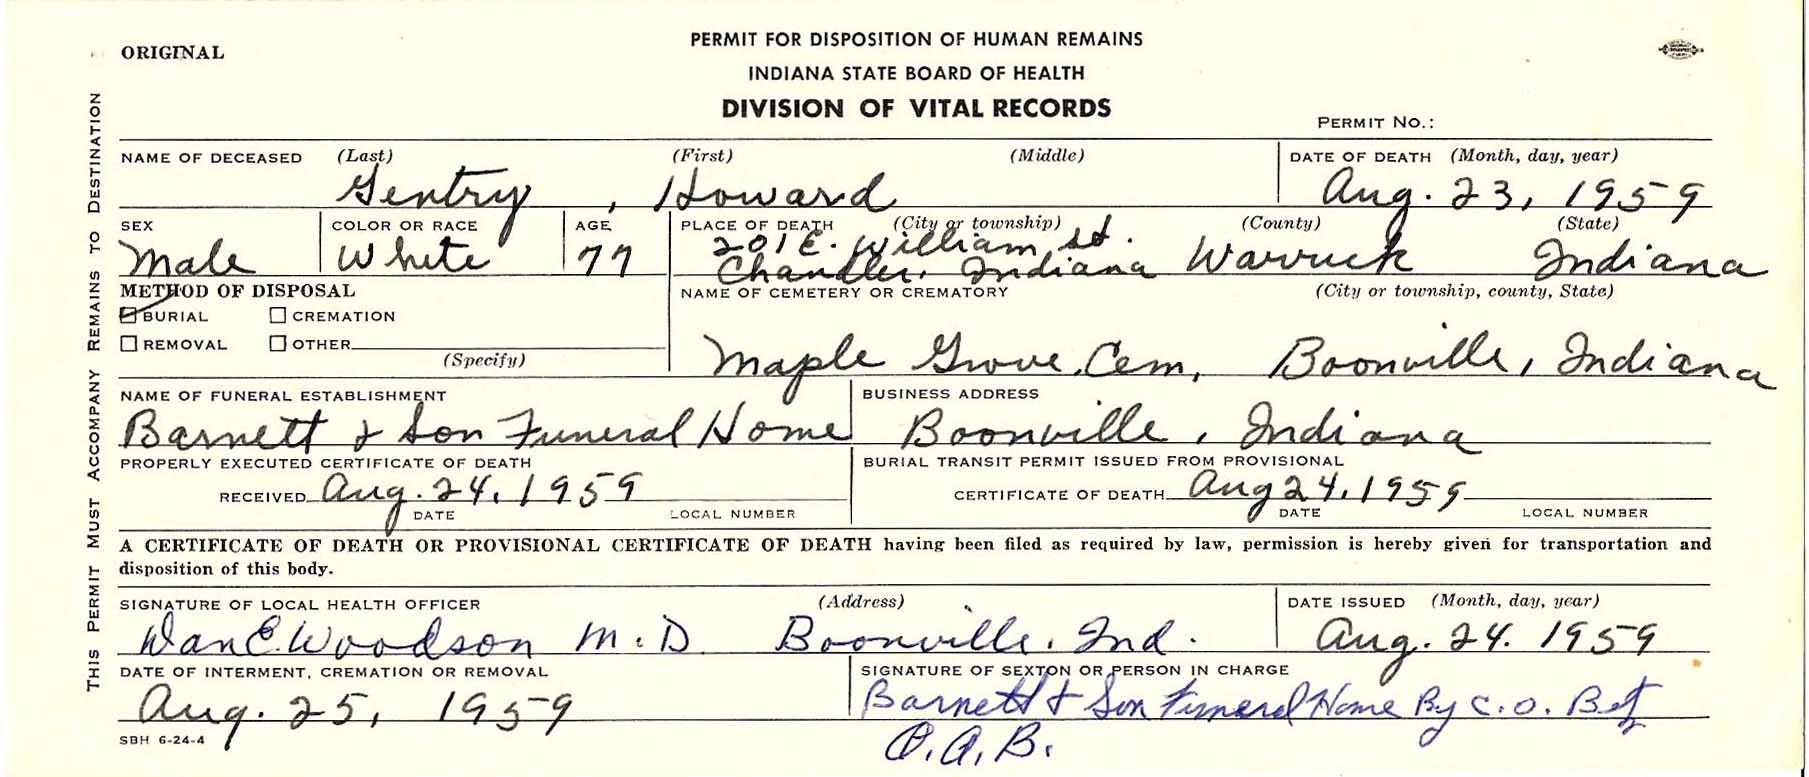 ORIGINAL
PERMIT FOR DISPOSITION OF HUMAN REMAINS
INDIANA STATE BOARD OF HEALTH
DIVISION OF VITAL RECORDS
PERMIT NO.:
THIS PERMIT MUST ACCOMPANY REMAINS TO DESTINATION
NAME OF DECEASED (Last) (First) (Middle) DATE OF DEATH (Month, day, year)
Gentry, Howard Aug. 23, 1959
SEX COLOR OR RACE AGE PLACE OF DEATH (City or township) (County) (State)
Male White 77 201 E. William St. Warrick Indiana
Chandler, Indiana
METHOD OF DISPOSAL NAME OF CEMETERY OR CREMATORY (City or township, county, State)
BURIAL CREMATION
REMOVAL OTHER
(Specify)
Maple Grove Cem, Boonville, Indiana
NAME OF FUNERAL ESTABLISHMENT BUSINESS ADDRESS
Barnett & Son Funeral Home Boonville, Indiana
PROPERLY EXECUTED CERTIFICATE OF DEATH BURIAL TRANSIT PERMIT ISSUED FROM PROVISIONAL
RECEIVED Aug. 24, 1959 CERTIFICATE OF DEATH Aug 24, 1959
DATE LOCAL NUMBER DATE LOCAL NUMBER
A CERTIFICATE OF DEATH OR PROVISIONAL CERTIFICATE OF DEATH having been filed as required by law, permission is hereby given for transportation and
disposition of this body.
SIGNATURE OF LOCAL HEALTH OFFICER (Address) DATE ISSUED (Month, day, year)
Dan E. Woodson M.D. Boonville, Ind. Aug. 24. 1959
DATE OF INTERMENT, CREMATION OR REMOVAL SIGNATURE OF SEXTON OR PERSON IN CHARGE
Aug. 25, 1959 Barnett & Son Funeral Home By C. O. Betz
O.A.B.
SBH 6-24-4